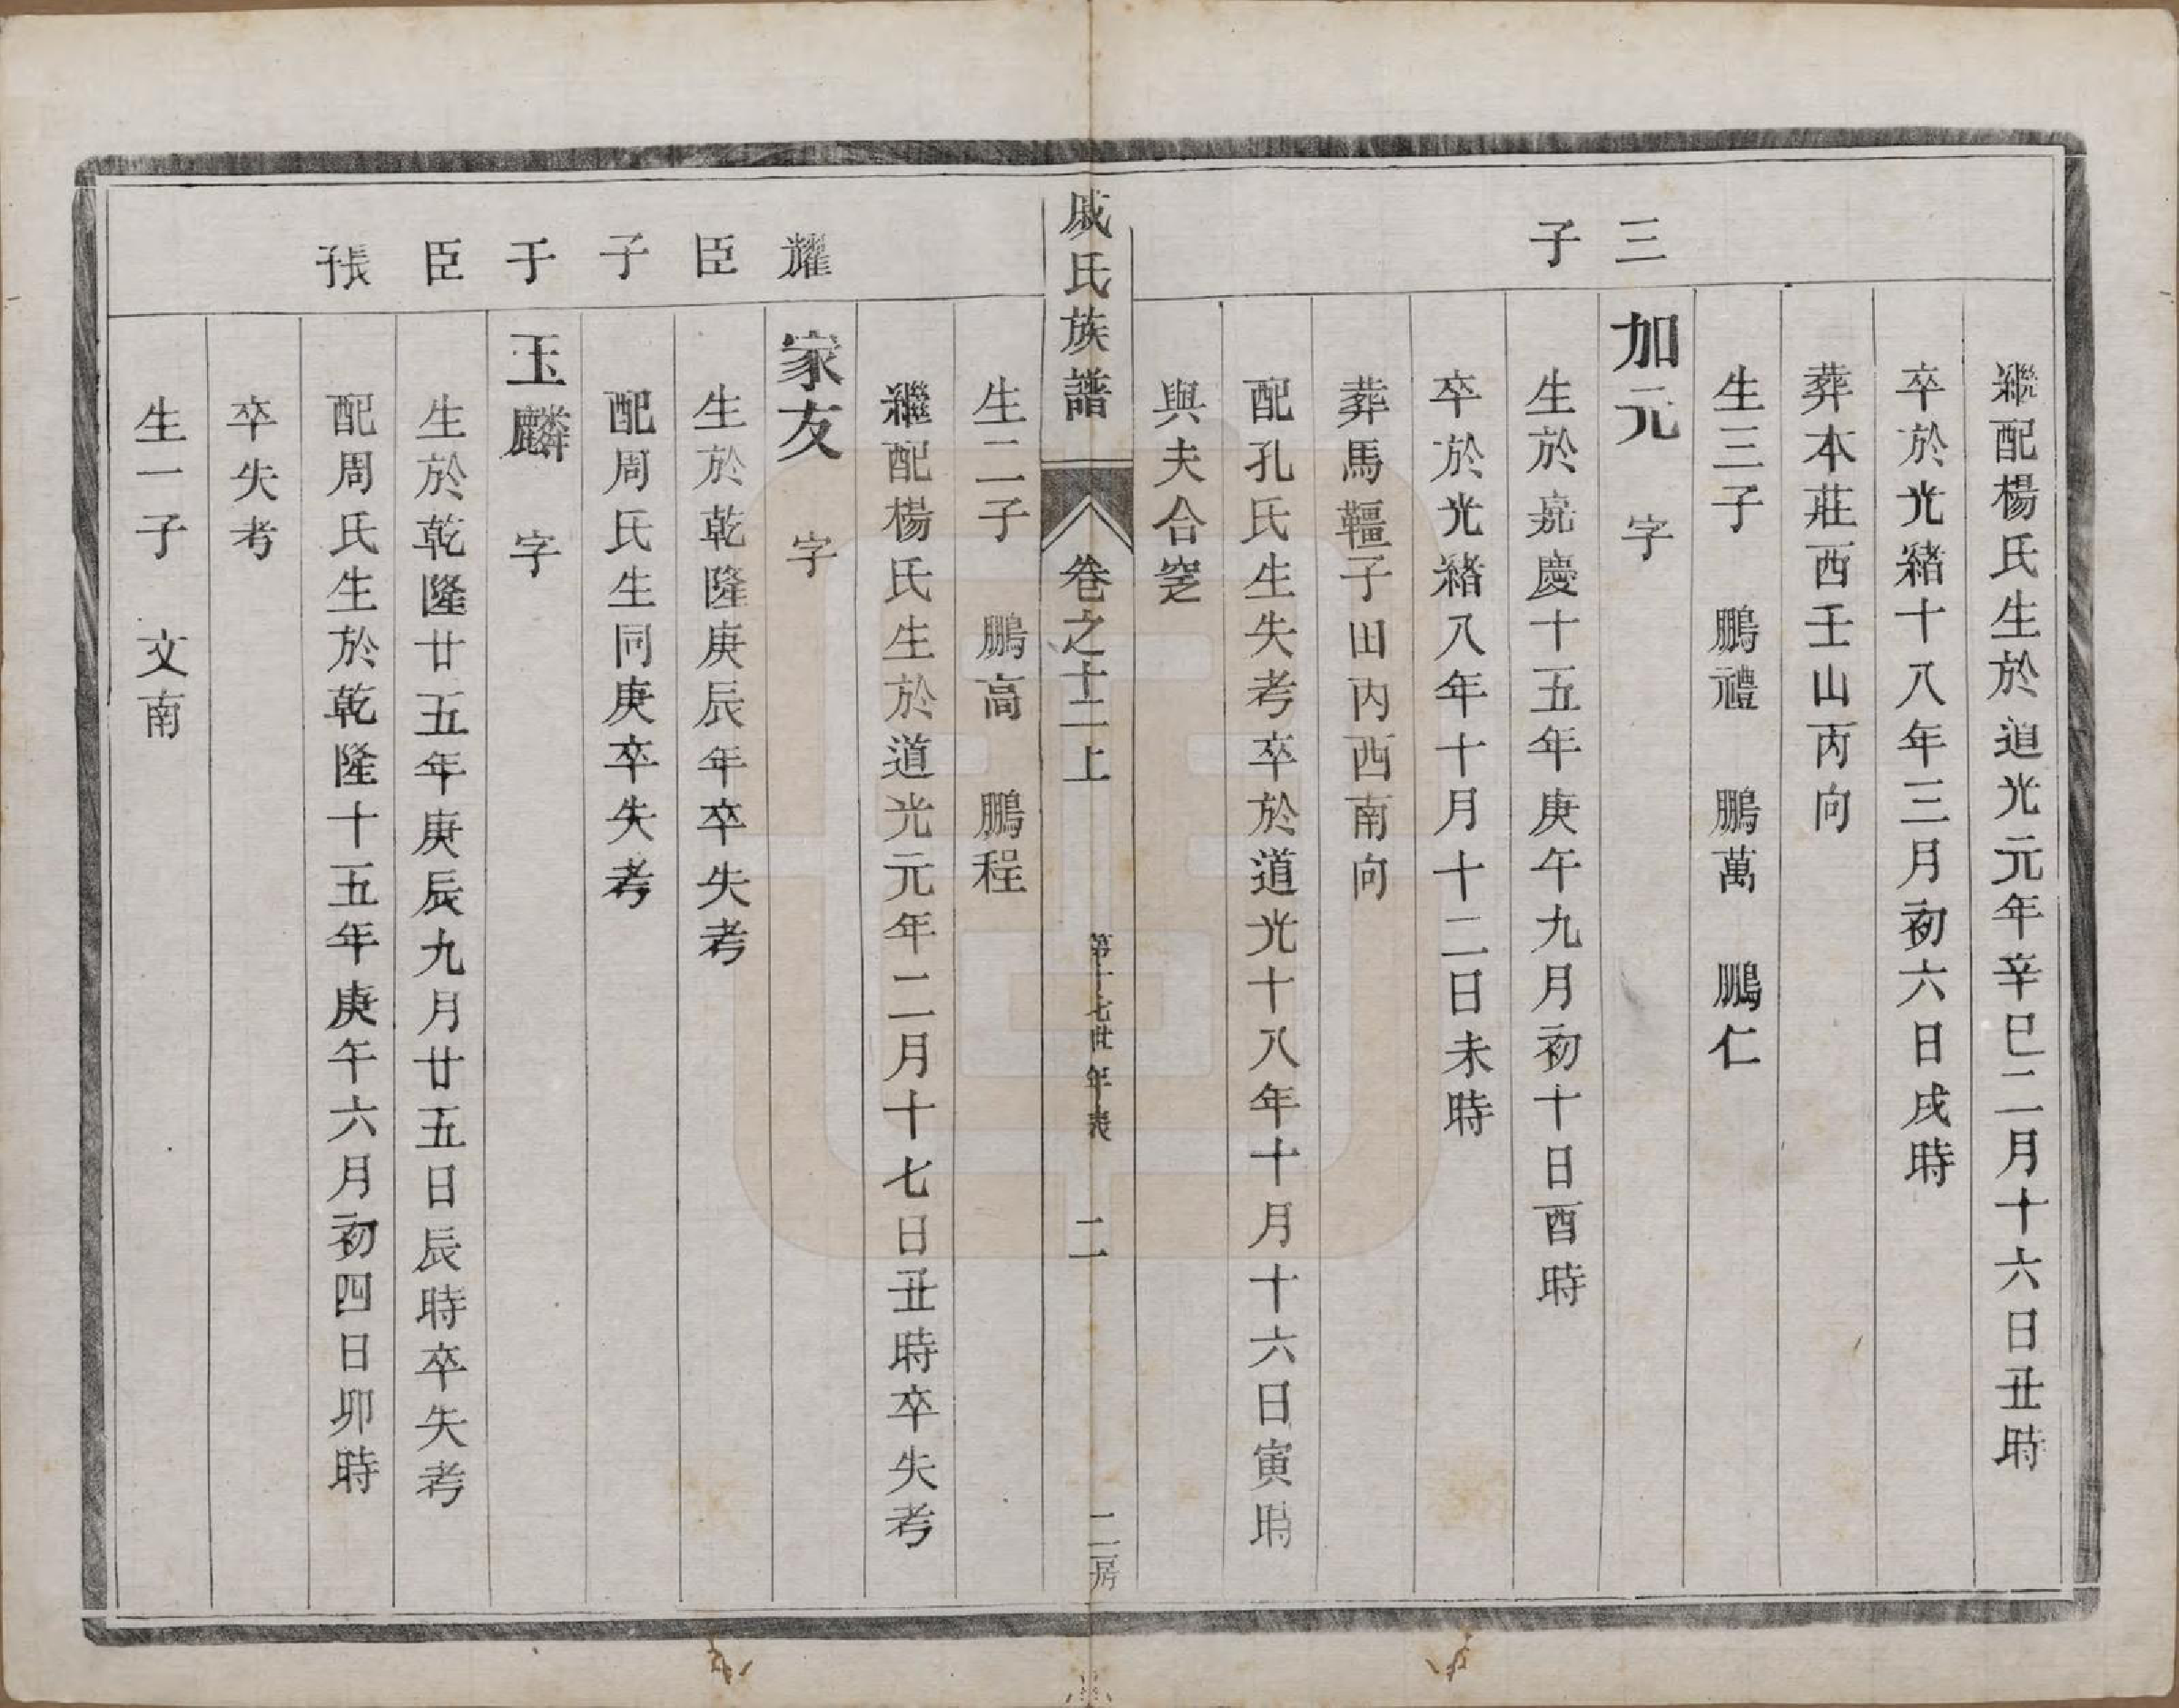 三子
繼配楊氏生於道光元年辛巳二月十六日丑時
卒於光緒十八年三月初六日戌時
葬本莊西壬山丙向
生三子 鵬禮 鵬萬 鵬仁
加元 字
生於嘉慶十五年庚午九月初十日酉時
卒於光緒八年十月十二日未時
葬馬韁子田内西南向
配孔氏生失考卒於道光十八年十月十六日寅時
與夫合窆
戚氏族譜 卷之十二上 第十七世年表 二 二房
耀臣子
于臣
生二子 鵬高 鵬程
繼配楊氏生於道光元年二月十七日丑時卒失考
家友 字
生於乾隆庚辰年卒失考
配周氏生同庚卒失考
玉麟 字
生於乾隆廿五年庚辰九月廿五日辰時卒失考
配周氏生於乾隆十五年庚午六月初四日卯時
卒失考
生一子 文南